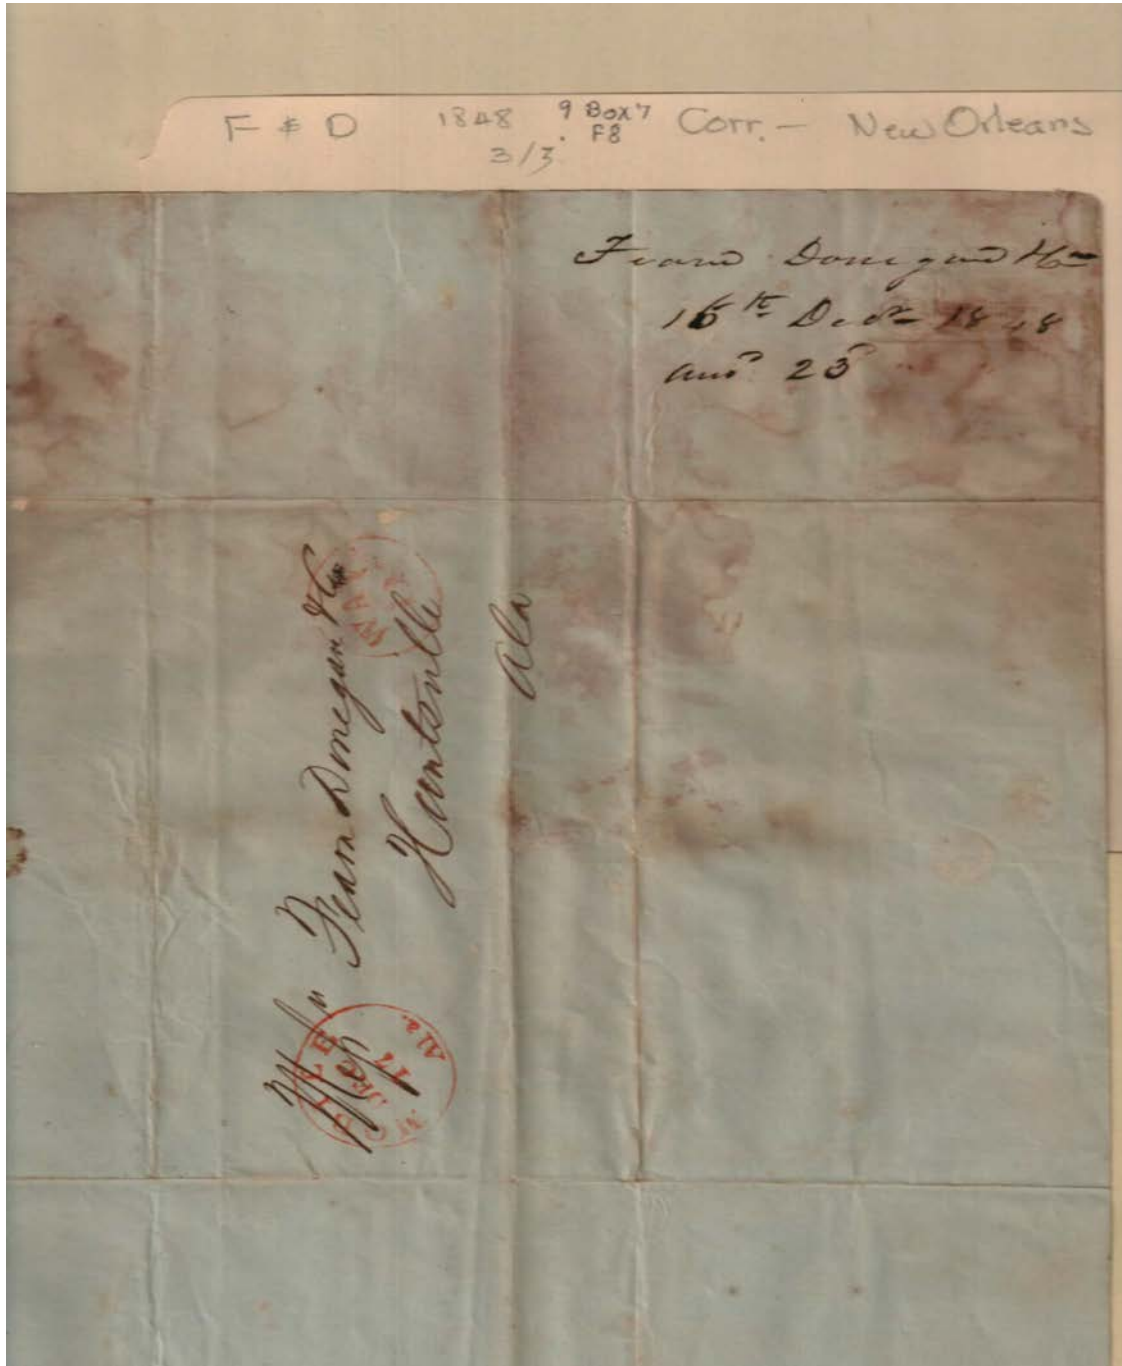 F & D 1848 9 Box 7 Corr. – New Orleans
3/3 . F8
Fearn Donegan & Co
16th Decr 1848
ansd 23d
Messrs Fearn Donegan & Co
Huntsville
Ala
MOBILE
DEC
17
Ala.
WAY